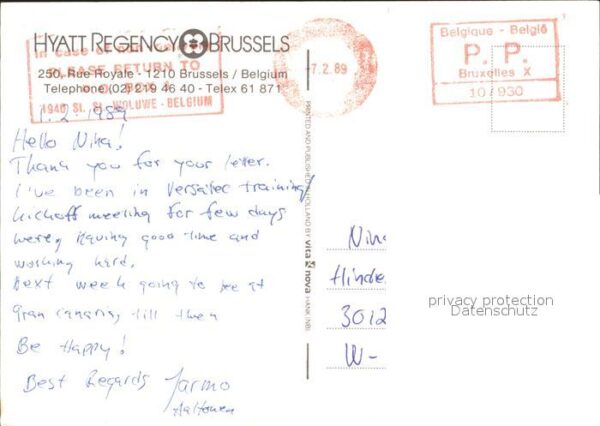 HYATT REGENCY BRUSSELS
In case of non
PLEASE RETURN TO
250, Rue Royale - 1210 Brussels / Belgium
Telephone (02) 219 46 40 - Telex 61 871
1940 St. St. WOLUWE - BELGIUM
-7.2.89
Belgique - België
P. P.
Bruxelles X
10/930
1.2 1989
Hello Nina!
Thank you for your letter.
I've been in Versatec training/
kickoff meeting for few days
were having good time and
working hard.
Next week going to be at
Gran Canaria, till then
Be Happy!
Best Regards Jarmo
Aaltonen
PRINTED AND PUBLISHED IN HOLLAND BY vita nova
Nina
Hinde
3012
W-
privacy protection
Datenschutz